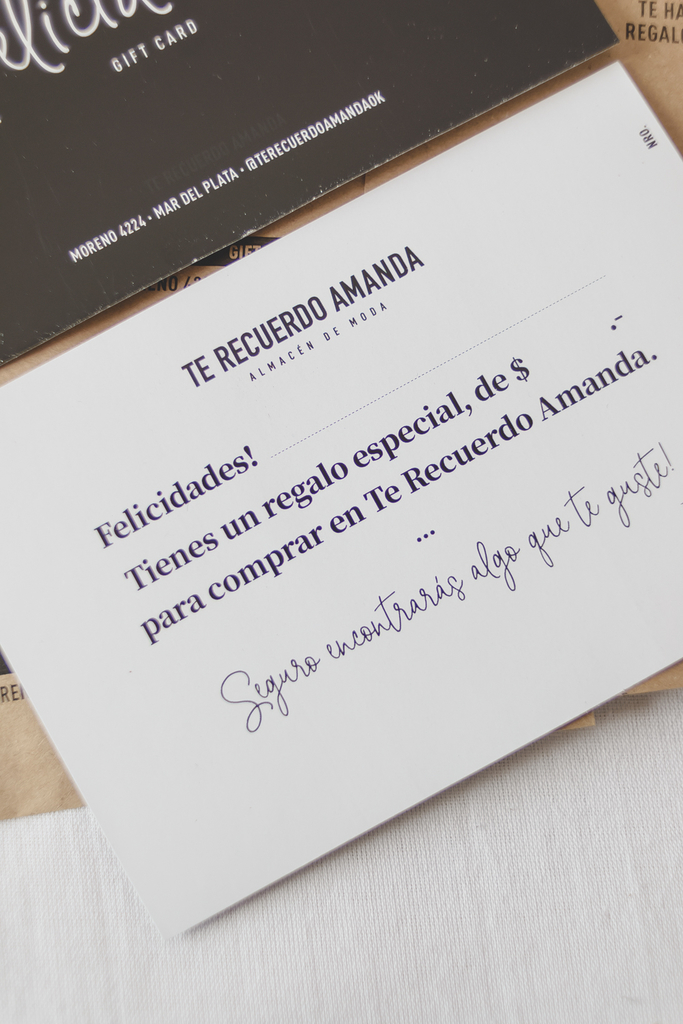 GIFT CARD
MORENO 4224 · MAR DEL PLATA · @TERECUERDOAMANDAOK
TE HA
REGAL
NRO.
GIFT
TE RECUERDO AMANDA
ALMACÉN DE MODA
Felicidades!
Tienes un regalo especial, de $ .-
para comprar en Te Recuerdo Amanda.
...
Seguro encontrarás algo que te guste!